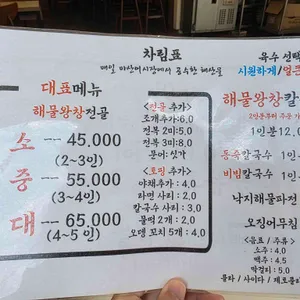 차림표
매일 마산어시장에서 공수한 해산물
대표메뉴
해물왕창전골
소 -- 45.000
(2~3인)
중 -- 55.000
(3~4인)
대 -- 65.000
(4~5인)
<전골 추가>
조개추가:6.0
전복 2미:5.0
전복 3미:8.0
문어:싯가
<토핑 추가>
야채추가 : 4.0
라면 사리 : 2.0
칼국수 사리 : 3.0
물떡 2개 : 2.0
오뎅 꼬치 5개 : 4.0
육수 선택
시원하게/얼큰
해물왕창칼
2인분부터 주문 가
1인분 12.0
동죽칼국수 1인
비빔칼국수 1인
낙지해물파전
오징어무침
<음료 / 주류>
소주 : 4.0
맥주 : 4.5
막걸리 : 5.0
콜라 / 사이다 / 제로콜라